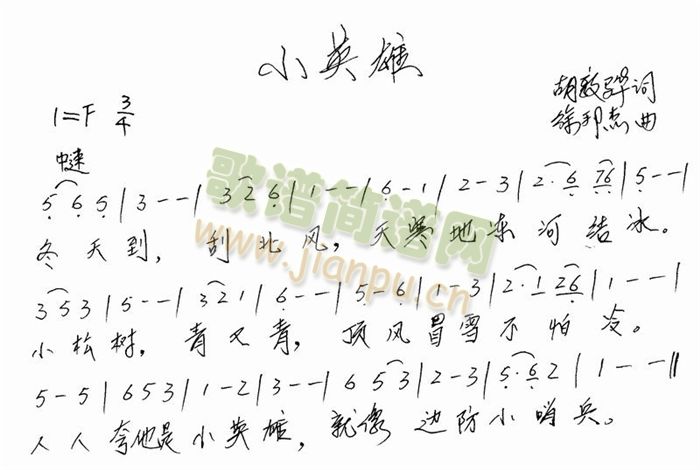 小英雄
胡敦骅词
1=F 3/4
徐邦杰曲
中速
5 6 5 | 3 - - | 3 2 6 | 1 - - | 6 - 1 | 2 - 3 | 2 · 6 76 | 5 - - |
冬天到，刮北风，天寒地冻河结冰。
歌谱简谱网
www.jianpu.cn
3 5 3 | 5 - - | 3 2 1 | 6 - - | 5 - 6 | 1 - 3 | 2 · 1 26 | 1 - - |
小松树，青又青，顶风冒雪不怕冷。
5 - 5 | 6 5 3 | 1 - 2 | 3 - - | 6 5 3 | 2 - 3 | 5 · 6 2 | 1 - - ||
人人夸他是小英雄，就像边防小哨兵。